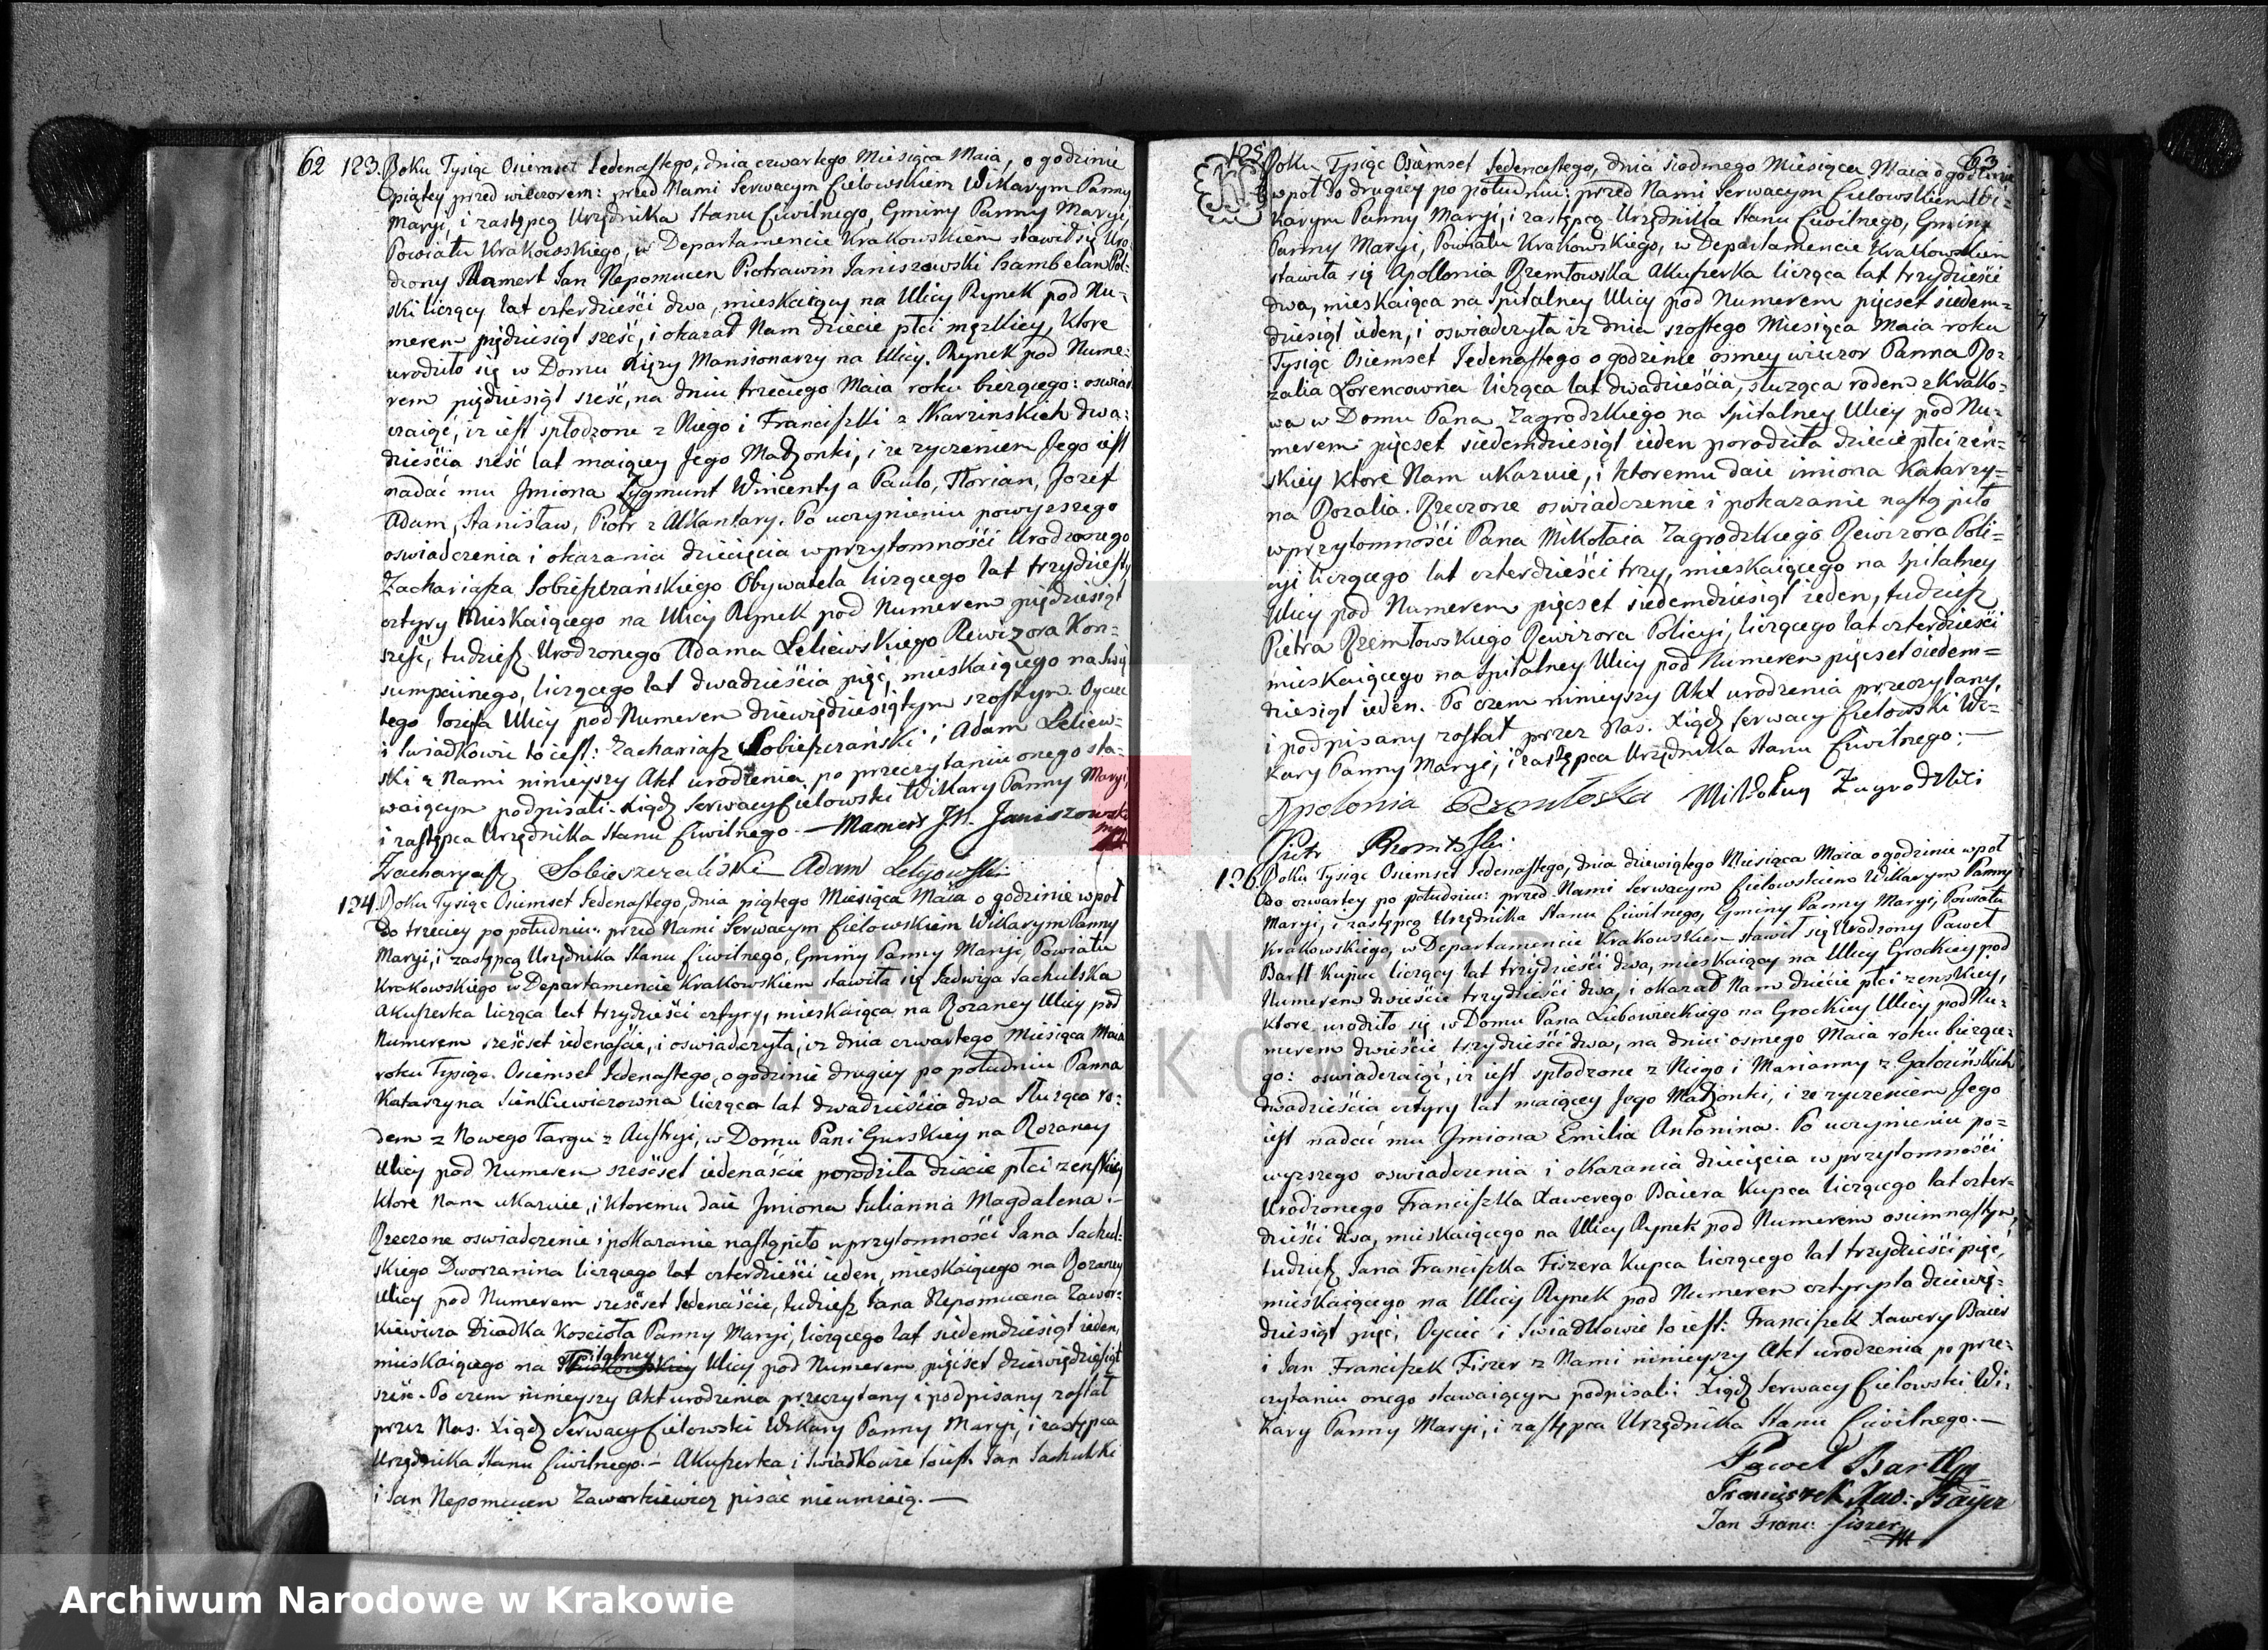 62
123. Roku Tysiąc Osiemset Jedenastego, dnia czwartego Miesiąca Maia, o godzinie
piątey przed wieczorem: przed Nami Serwacym Cielowskiem Wikarym Panny
Maryi, i zastępcą Urzędnika Stanu Cywilnego, Gminy Panny Maryi,
Powiatu Krakowskiego, w Departamencie Krakowskiem stawił się Uro-
dzony Mamert Jan Nepomucen Piotrawin Janiszowski Szambelan Pol-
ski liczący lat czterdzieści dwa, mieskaiący na Ulicy Rynek pod Nu-
merem piędziesiąt sześć, i okazał Nam dziecie płci męzkiey, które
urodziło się w Domu Xięzy Mansionarzy na Ulicy Rynek pod Nume-
rem piędziesiąt sześć, na dniu trzeciego Maia roku bieżącego: oswiad
czaiąc, iz iest spłodzone z Niego i Franciszki z Skarzinskich dwa-
dzieścia sześć lat maiącey Jego Małżonki, i ze zyczeniem Jego iest
nadać mu Jmiona Zygmunt Wincenty a Paulo, Florian, Jozef
Adam, Stanisław, Piotr z Alkantary. Po uczynieniu powyzszego
oswiadczenia i okazania dziecięcia w przytomności Urodzonego
Zachariasza Sobieszczańskiego Obywatela liczącego lat trzydzieści
cztyry Mieskaiącego na Ulicy Rynek pod Numerem pięćdziesiąt
sześć, tudziesz Urodzonego Adama Leliewskiego Rewizora Kon-
sumpcinego, liczącego lat dwadzieścia pięć, mieskaiącego na Swię
tego Jozefa Ulicy pod Numerem dziewiędziesiątym szostym. Oyciec
i Swiadkowie to iest: Zachariasz Sobieszczański i Adam Leliew-
ski z Nami ninieyszy Akt urodzenia po przeczytaniu onego sta-
waiącym podpisali. Xiądz Serwacy Cielowski Wikary Panny Maryi,
i zastępca Urzędnika Stanu Cywilnego. — Mamert J. N. Janiszowski
Zacharyasz Sobieszczański Adam Leliowski
124. Roku Tysiąc Osiemset Jedenastego, dnia piątego Miesiąca Maia o godzinie wpoł
do trzeciey po południu: przed Nami Serwacym Cielowskiem Wikarym Panny
Maryi, i zastępcą Urzędnika Stanu Cywilnego, Gminy Panny Maryi, Powiatu
Krakowskiego w Departamencie Krakowskiem stawiła się Jadwiga Sachulska
Akuszerka licząca lat trzydzieści cztyry, mieskaiąca na Rozaney Ulicy pod
Numerem sześćset iedenaście, i oswiadczyła, iz dnia czwartego Miesiąca Maia
roku Tysiąc Osiemset Jedenastego, o godzinie drugiey po południu Panna
Katarzyna Sienkiewiczowna licząca lat dwadzieścia dwa Służąca ro-
dem z Nowego Targu z Austryi, w Domu Pani Gurskiey na Rozaney
Ulicy pod Numerem sześćset iedenaście porodziła dziecie płci zenskiey
które Nam ukazuie, i któremu daie Jmiona Julianna Magdalena.—
Rzeczone oswiadczenie i pokazanie nastąpiło w przytomności Jana Sachul-
skiego Dworzanina liczącego lat czterdzieści ieden, mieskaiącego na Rozaney
Ulicy pod Numerem sześćset Jedenaście, tudziesz Jana Nepomucena Zawor-
kiewicza Dziadka Kościoła Panny Maryi, liczącego lat siedemdziesiąt ieden,
mieskaiącego na Spitalney Ulicy pod Numerem pięćset dziewiędziesiąt
sześć. Po czem ninieyszy Akt urodzenia przeczytany i podpisany został
przez Nas. Xiądz Serwacy Cielowski Wikary Panny Maryi, i zastępca
Urzędnika Stanu Cywilnego.— Akuszerka i Swiadkowie to iest Jan Sachulski
i Jan Nepomucen Zaworkiewicz pisać nieumieią.—
63
125 Roku Tysiąc Osiemset Jedenastego, dnia siodmego Miesiąca Maia o godzinie
wpoł do drugiey po południu: przed Nami Serwacym Cielowskiem Wi-
karym Panny Maryi, i zastępcą Urzędnika Stanu Cywilnego, Gminy
Panny Maryi, Powiatu Krakowskiego, w Departamencie Krakowskiem
stawiła się Apollonia Rzemłowska Akuszerka licząca lat trzydzieści
dwa, mieskaiąca na Spitalney Ulicy pod Numerem pięcset siedem-
dziesiąt ieden, i oswiadczyła iz dnia szostego Miesiąca Maia roku
Tysiąc Osiemset Jedenastego o godzinie osmey wieczor Panna Ro-
zalia Lorencowna licząca lat dwadzieścia, służąca rodem z Krako-
wa w Domu Pana Zagrodzkiego na Spitalney Ulicy pod Nu-
merem pięcset siedemdziesiąt ieden porodziła dziecie płci zen-
skiey które Nam ukazuie, i któremu daie imiona Katarzy-
na Rozalia. Rzeczone oswiadczenie i pokazanie nastąpiło
w przytomności Pana Mikołaia Zagrodzkiego Rewizora Poli-
cyi liczącego lat czterdzieści trzy, mieskaiącego na Spitalney
Ulicy pod Numerem pięcset siedemdziesiąt ieden, tudziesz
Piotra Rzemłowskiego Rewizora Policyi, liczącego lat czterdzieści
mieskaiącego na Spitalney Ulicy pod Numerem pięcset siedem-
dziesiąt ieden. Po czem ninieyszy Akt urodzenia przeczytany
i podpisany został przez Nas. Xiądz Serwacy Cielowski Wi-
kary Panny Maryi, i zastępca Urzędnika Stanu Cywilnego.—
Apolonia Rzemłoska Mikołay Zagrodzki
Piotr Rzemłoski
126. Roku Tysiąc Osiemset Jedenastego, dnia dziewiątego Miesiąca Maia o godzinie wpoł
do czwartey po południu: przed Nami Serwacym Cielowskiem Wikarym Panny
Maryi, i zastępcą Urzędnika Stanu Cywilnego, Gminy Panny Maryi, Powiatu
Krakowskiego, w Departamencie Krakowskiem stawił się Urodzony Paweł
Bartl Kupiec liczący lat trzydzieści dwa, mieskaiący na Ulicy Grockiey pod
Numerem dwieście trzydzieści dwa, i okazał Nam dziecie płci zenskiey,
które urodziło się w Domu Pana Lubowieckiego na Grockiey Ulicy pod Nu-
merem dwieście trzydzieści dwa, na dniu osmego Maia roku bieżące-
go: oswiadczaiąc, iz iest spłodzone z Niego i Marianny z Galozińskich
dwadzieścia cztyry lat maiącey Jego Małżonki, i ze zyczeniem Jego
iest nadać mu Jmiona Emilia Antonina. Po uczynieniu po-
wyzszego oswiadczenia i okazania dziecięcia w przytomności
Urodzonego Franciszka Xawerego Baiera Kupca liczącego lat czter-
dzieści dwa, mieskaiącego na Ulicy Rynek pod Numerem osiemnastym,
tudziesz Jana Franciszka Fiszera Kupca liczącego lat trzydzieści pięć,
mieskaiącego na Ulicy Rynek pod Numerem cztyrysta dziewię-
dziesiąt pięć, Oyciec i Swiadkowie to iest: Franciszek Xawery Baier
i Jan Franciszek Fiszer z Nami ninieyszy Akt urodzenia po prze-
czytaniu onego stawaiącym podpisali. Xiądz Serwacy Cielowski Wi-
kary Panny Maryi, i zastępca Urzędnika Stanu Cywilnego.—
Paweł Bartl
Franciszek Xaw: Bayer
Jan Franc: Fiszer
ARCHIWUM NARODOWE
W KRAKOWIE
Archiwum Narodowe w Krakowie